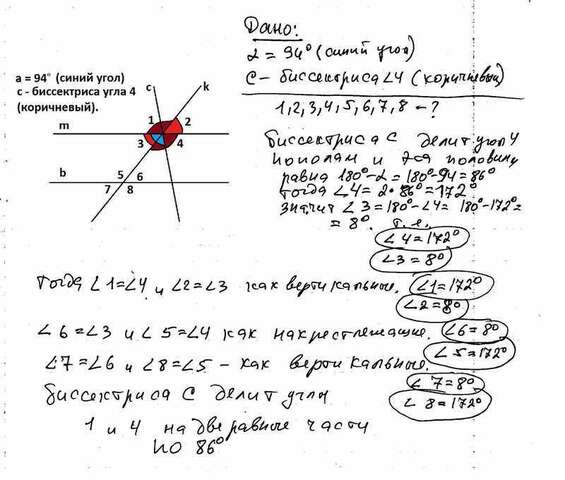 a = 94° (синий угол)
с - биссектриса угла 4
(коричневый).
c
k
1
2
m
3
4
b
5
6
7
8
Дано:
α = 94° (синий угол)
С - биссектриса ∠4 (коричневый)
1,2,3,4,5,6,7,8 - ?
Биссектриса С делит угол 4
пополам и эта половина
равна 180°-α = 180°-94 = 86°
тогда ∠4 = 2·86° = 172°
значит ∠3 = 180°-∠4 = 180°-172° =
= 8°. т.е.
∠4 = 172°
∠3 = 8°
Тогда ∠1=∠4 и ∠2=∠3 как вертикальные. ∠1 = 172°
∠2 = 8°
∠6=∠3 и ∠5=∠4 как накрестлежащие. ∠6 = 8°
∠5 = 172°
∠7=∠6 и ∠8=∠5 - как вертикальные.
∠7 = 8°
∠8 = 172°
Биссектриса С делит углы
1 и 4 на две равные части
по 86°